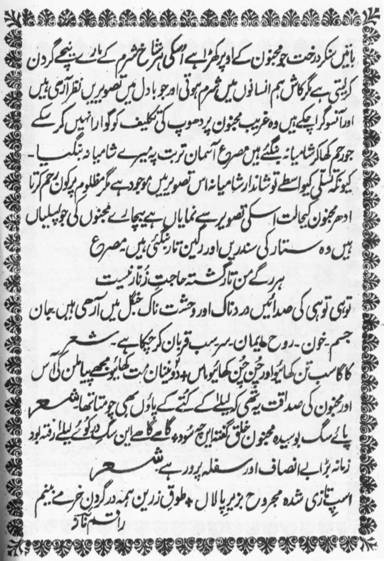 باتیں سنکر درخت جو مجنون کے اوپر کھڑا ہے اسکی ہر شاخ شرم کے مارے نیچے گردن
کرلیتی ہے مگر کاش ہم انسانوں میں شرم ہوتی اور جو بادل میں تصویریں نظر آرہی ہیں
اور آنسو گرا چکے ہیں وہ غریب مجنون پر دھوپ کی تکلیف کو گوارا نہیں کر سکے
جو رحم کھا کر شامیانہ بنگئے ہیں مصرع آسمان تربت پہ میرے شامیانہ بنگیا -
کیونکہ لیلی کیواسطے تو شاندار شامیانہ اس تصویر میں موجود ہے مگر مظلوم پر کون رحم کرتا
ادھر مجنون کیحالت اسکی تصویر سے نمایاں ہے بیچارے مجنوں کی جو پسلیاں
ہیں وہ ستار کی سندریں اور رگیں تار بنگئی ہیں مصرع
ہر رگ من تار گشتہ حاجت زنار نیست
توہی توہی کی صدائیں دردناک اور وحشت ناک جنگل میں آرہی ہیں - جان
جسم - خون - روح - ایمان - سر سب قربان کر چکا ہے - شعر
کاگا سب تن کھائیو اور چن چن کھائیو ماس + دو نینان مت کھائیو مجھے پیا ملن کی آس
اور مجنون کی صداقت یہ تھی کہ لیلیٰ کے کتے کے پاؤں بھی چومتا تھا شعر
پائے سگ بوسیدہ مجنون خلق گفتند این چہ سود + گاہے گاہے این سگ در کوئے لیلےٰ رفتہ بود
زمانہ بڑا بے انصاف اور سفلہ پرور ہے - شعر
اسپ تازی شدہ مجروح بزیر پالان + طوق زرین ہمہ در گردن خر مے بینم
راقم